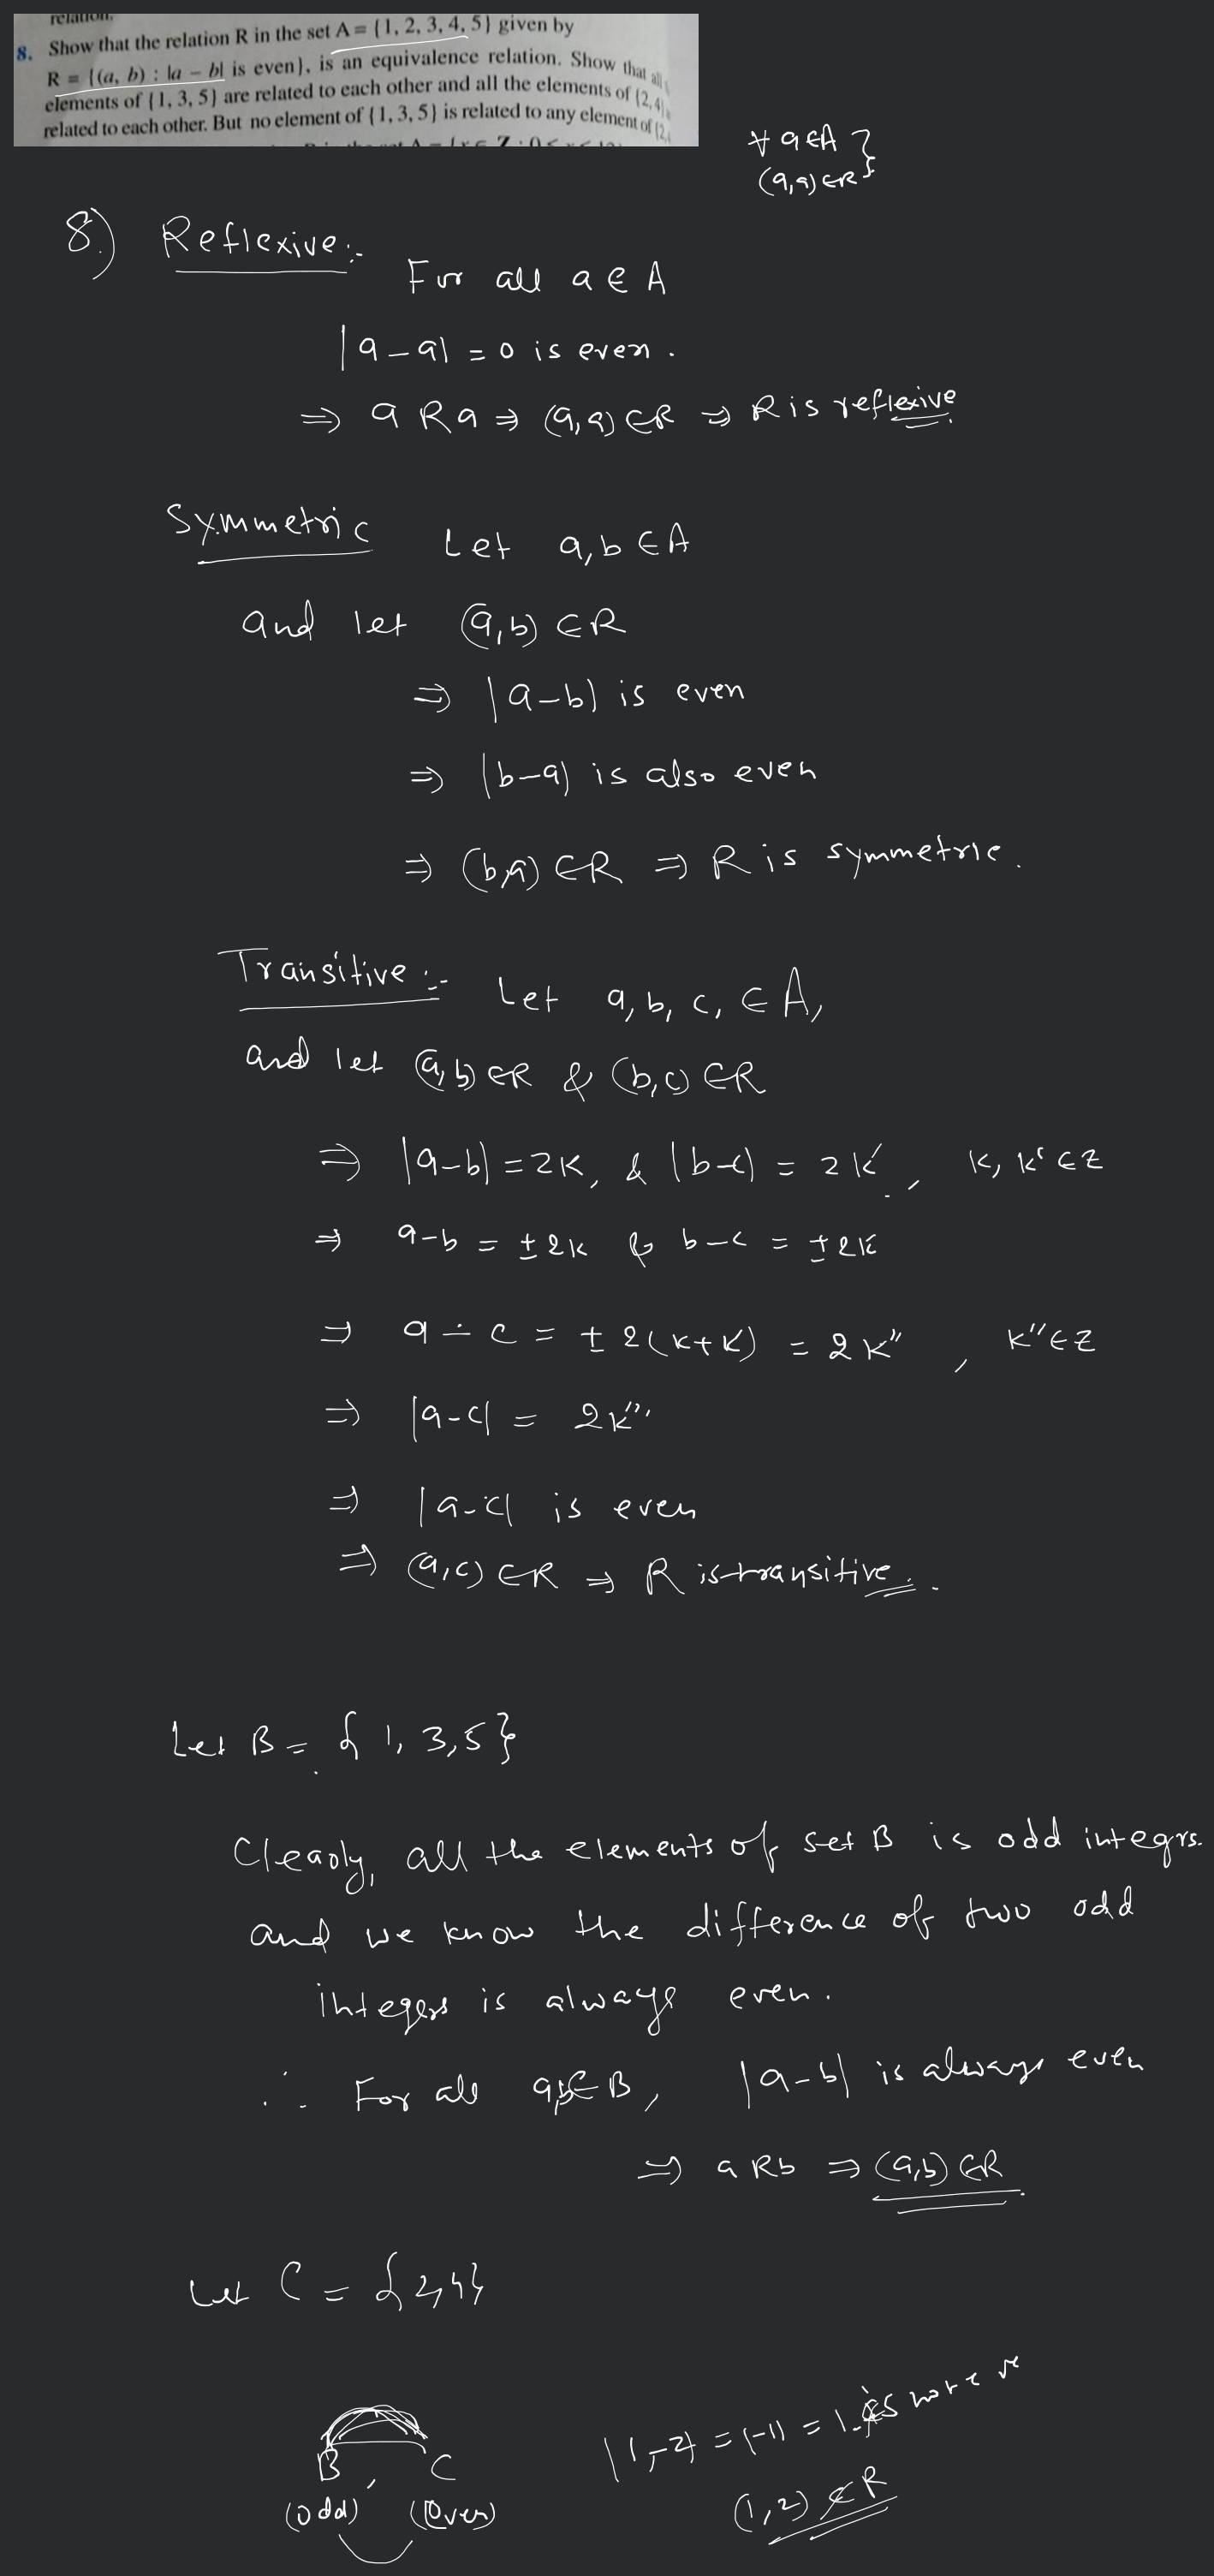 relation.
8. Show that the relation R in the set A = {1, 2, 3, 4, 5} given by
R = {(a, b) : |a – b| is even}, is an equivalence relation. Show that all
elements of {1, 3, 5} are related to each other and all the elements of {2, 4}
related to each other. But no element of {1, 3, 5} is related to any element of {2,
∀ a ∈ A }
(a,a) ∈ R }
8.) Reflexive :-
For all a ∈ A
|a – a| = 0 is even.
⇒ a R a ⇒ (a,a) ∈ R ⇒ R is reflexive
Symmetric Let a, b ∈ A
and let (a, b) ∈ R
⇒ |a – b| is even
⇒ |b – a| is also even
⇒ (b,a) ∈ R ⇒ R is symmetric.
Transitive :- Let a, b, c, ∈ A,
and let (a, b) ∈ R & (b, c) ∈ R
⇒ |a – b| = 2K, & |b – c| = 2K', K, K' ∈ Z
⇒ a – b = ± 2K & b – c = ± 2K'
⇒ a – c = ± 2(K + K') = 2K'', K'' ∈ Z
⇒ |a – c| = 2K'''
⇒ |a – c| is even
⇒ (a, c) ∈ R ⇒ R is transitive.
Let B = { 1, 3, 5 }
Clearly, all the elements of set B is odd integrs.
and we know the difference of two odd
integers is always even.
∴ For all a,b ∈ B, |a – b| is always even
⇒ a R b ⇒ (a,b) ∈ R
Let C = {2,4}
|1 – 2| = |-1| = 1 is not
B, C
(1, 2) ∉ R
(odd) (Even)